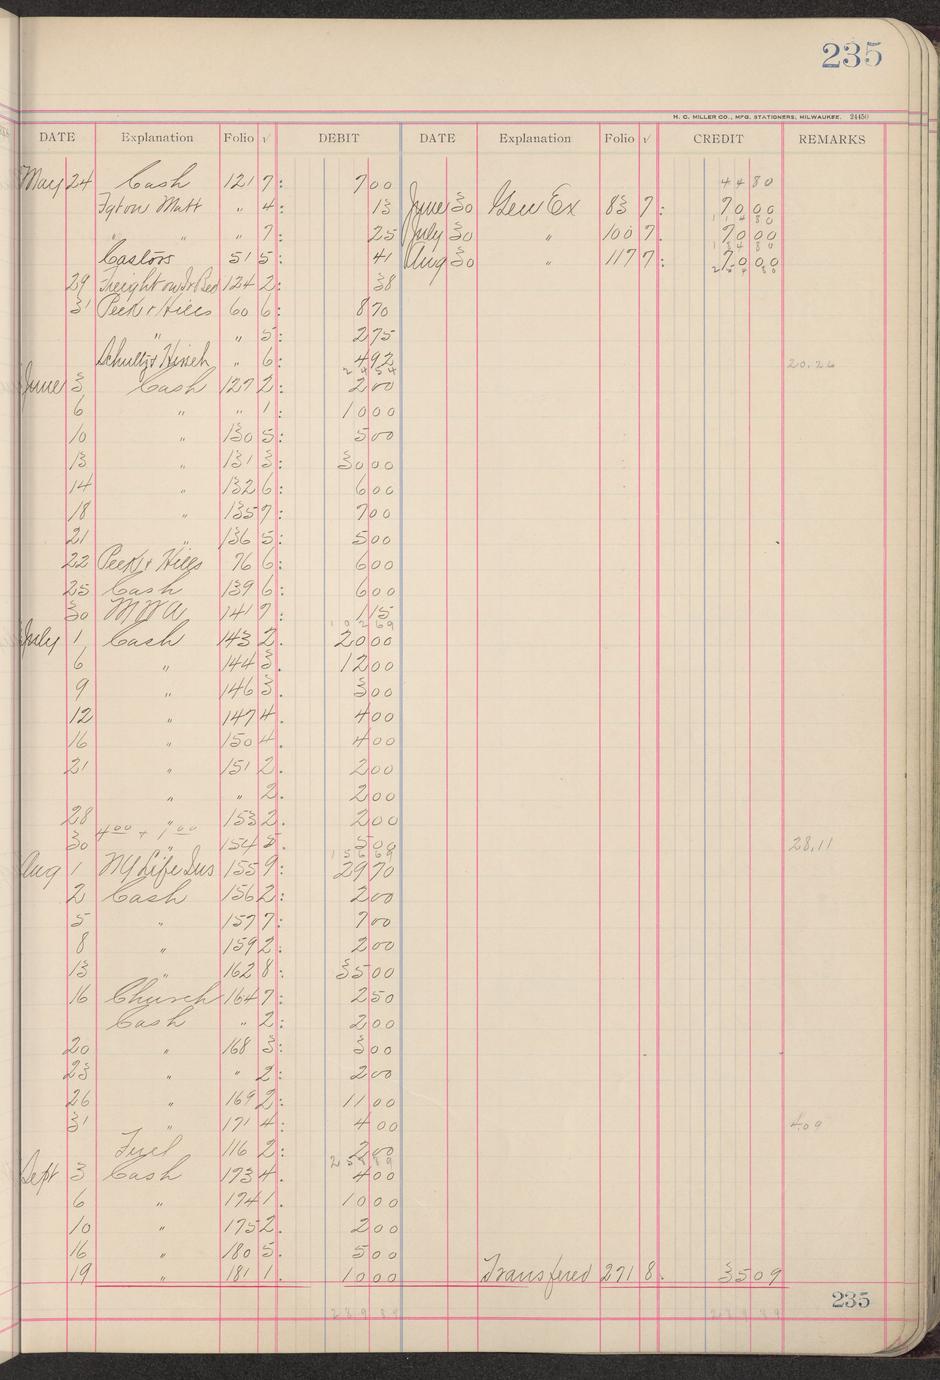 235
H. C. MILLER CO., MFG. STATIONERS, MILWAUKEE. 24450
DATE Explanation Folio √ DEBIT DATE Explanation Folio √ CREDIT REMARKS
May 24 Cash 121 7: 7 00 44 80
Fgt on Matt " 4: 13 June 30 Gen Ex 83 7: 70 00
114 80
" " " 7: 25 July 30 " 100 7. 70 00
184 80
Castors 51 5: 41 Aug 30 " 117 7: 70 00
254 80
29 Freight on Ir Bed 124 2: 38
31 Peek & Hills 60 6: 8 70
" " 5: 2 75
Schultz & Hirsch " 6: 4 92 20.26
24 54
June 3 Cash 127 2: 2 00
6 " " 1: 10 00
10 " 130 5: 5 00
13 " 131 3: 30 00
14 " 132 6: 6 00
18 " 135 7: 7 00
21 " 136 5: 5 00
22 Peek & Hills 76 6: 6 00
25 Cash 139 6: 6 00
30 MWA 141 7: 1 15
102 69
July 1 Cash 143 2. 20 00
6 " 144 3. 12 00
9 " 146 3. 3 00
12 " 147 4. 4 00
16 " 150 4. 4 00
21 " 151 2. 2 00
" " 2. 2 00
28 " 153 2. 2 00
4 00 + 1 00
30 " 154 5. 5 00 28.11
156 69
Aug 1 NY Life Ins 155 9: 29 70
2 Cash 156 2: 2 00
5 " 157 7: 7 00
8 " 159 2: 2 00
13 " 162 8: 35 00
16 Church 164 7: 2 50
Cash " 2: 2 00
20 " 168 3: 3 00
23 " " 2: 2 00
26 " 169 2: 11 00
31 " 171 4: 4 00 4.09
Fuel 116 2: 2 00
258 89
Sept 3 Cash 173 4. 4 00
6 " 174 1. 10 00
10 " 175 2. 2 00
16 " 180 5. 5 00
19 " 181 1. 10 00 Transfered 271 8. 35 09
235
289 89 289 89